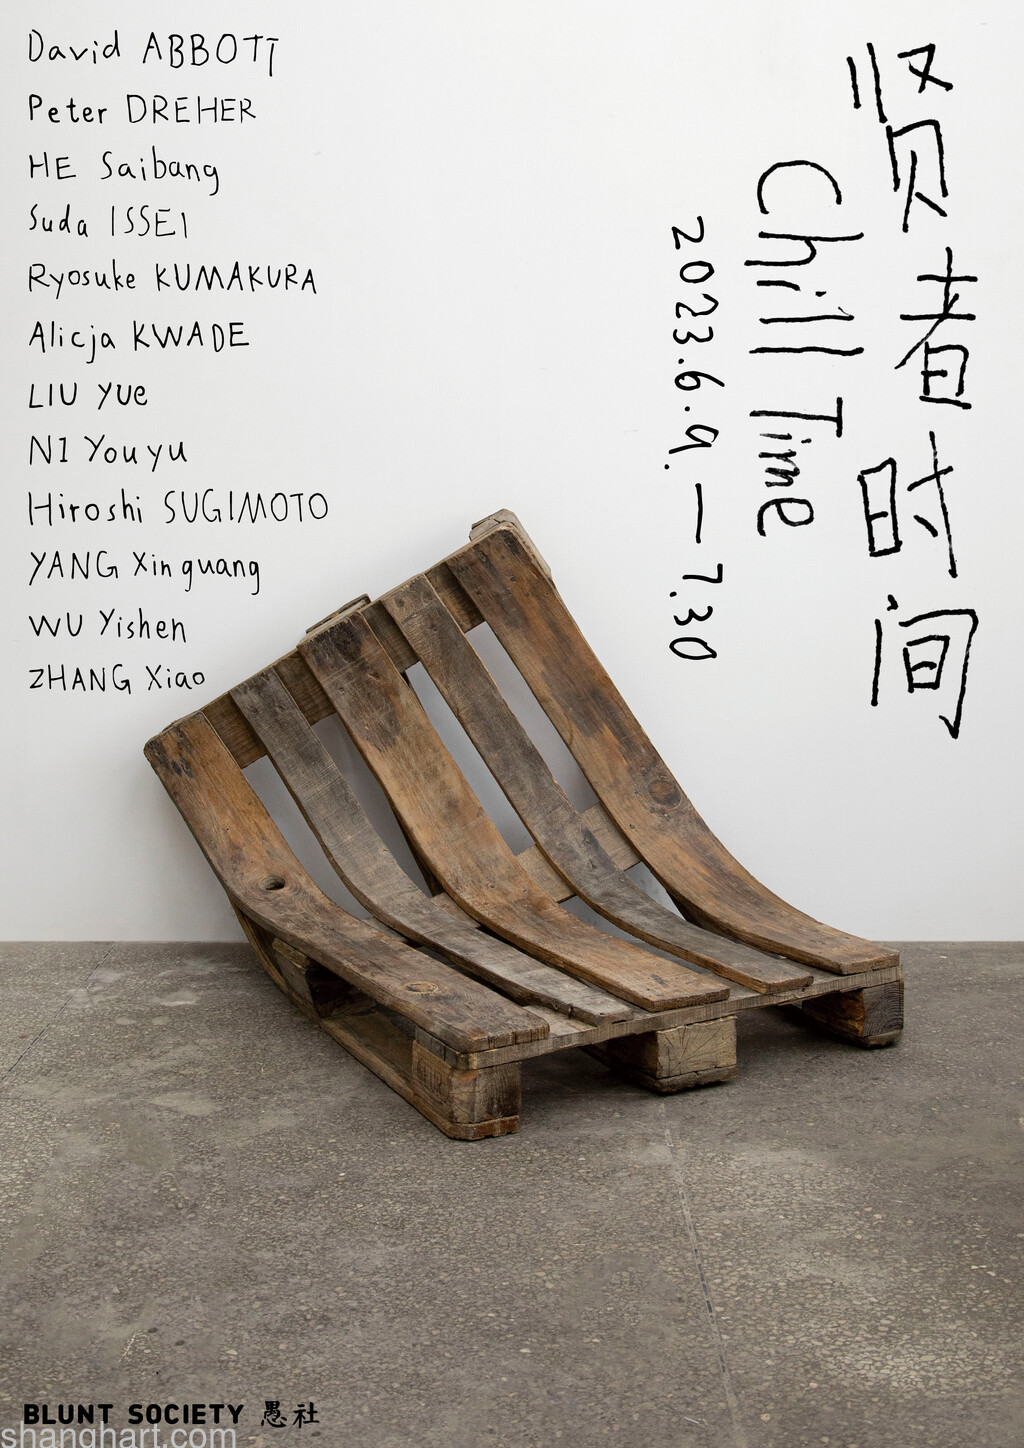 David ABBOTT
Peter DREHER
HE Saibang
Suda ISSEI
Ryosuke KUMAKURA
Alicja KWADE
LIU Yue
NI Youyu
Hiroshi SUGIMOTO
YANG Xinguang
WU Yishen
ZHANG Xiao
贤者时间
Chill Time
2023.6.9.—7.30
BLUNT SOCIETY 愚社
shanghart.com